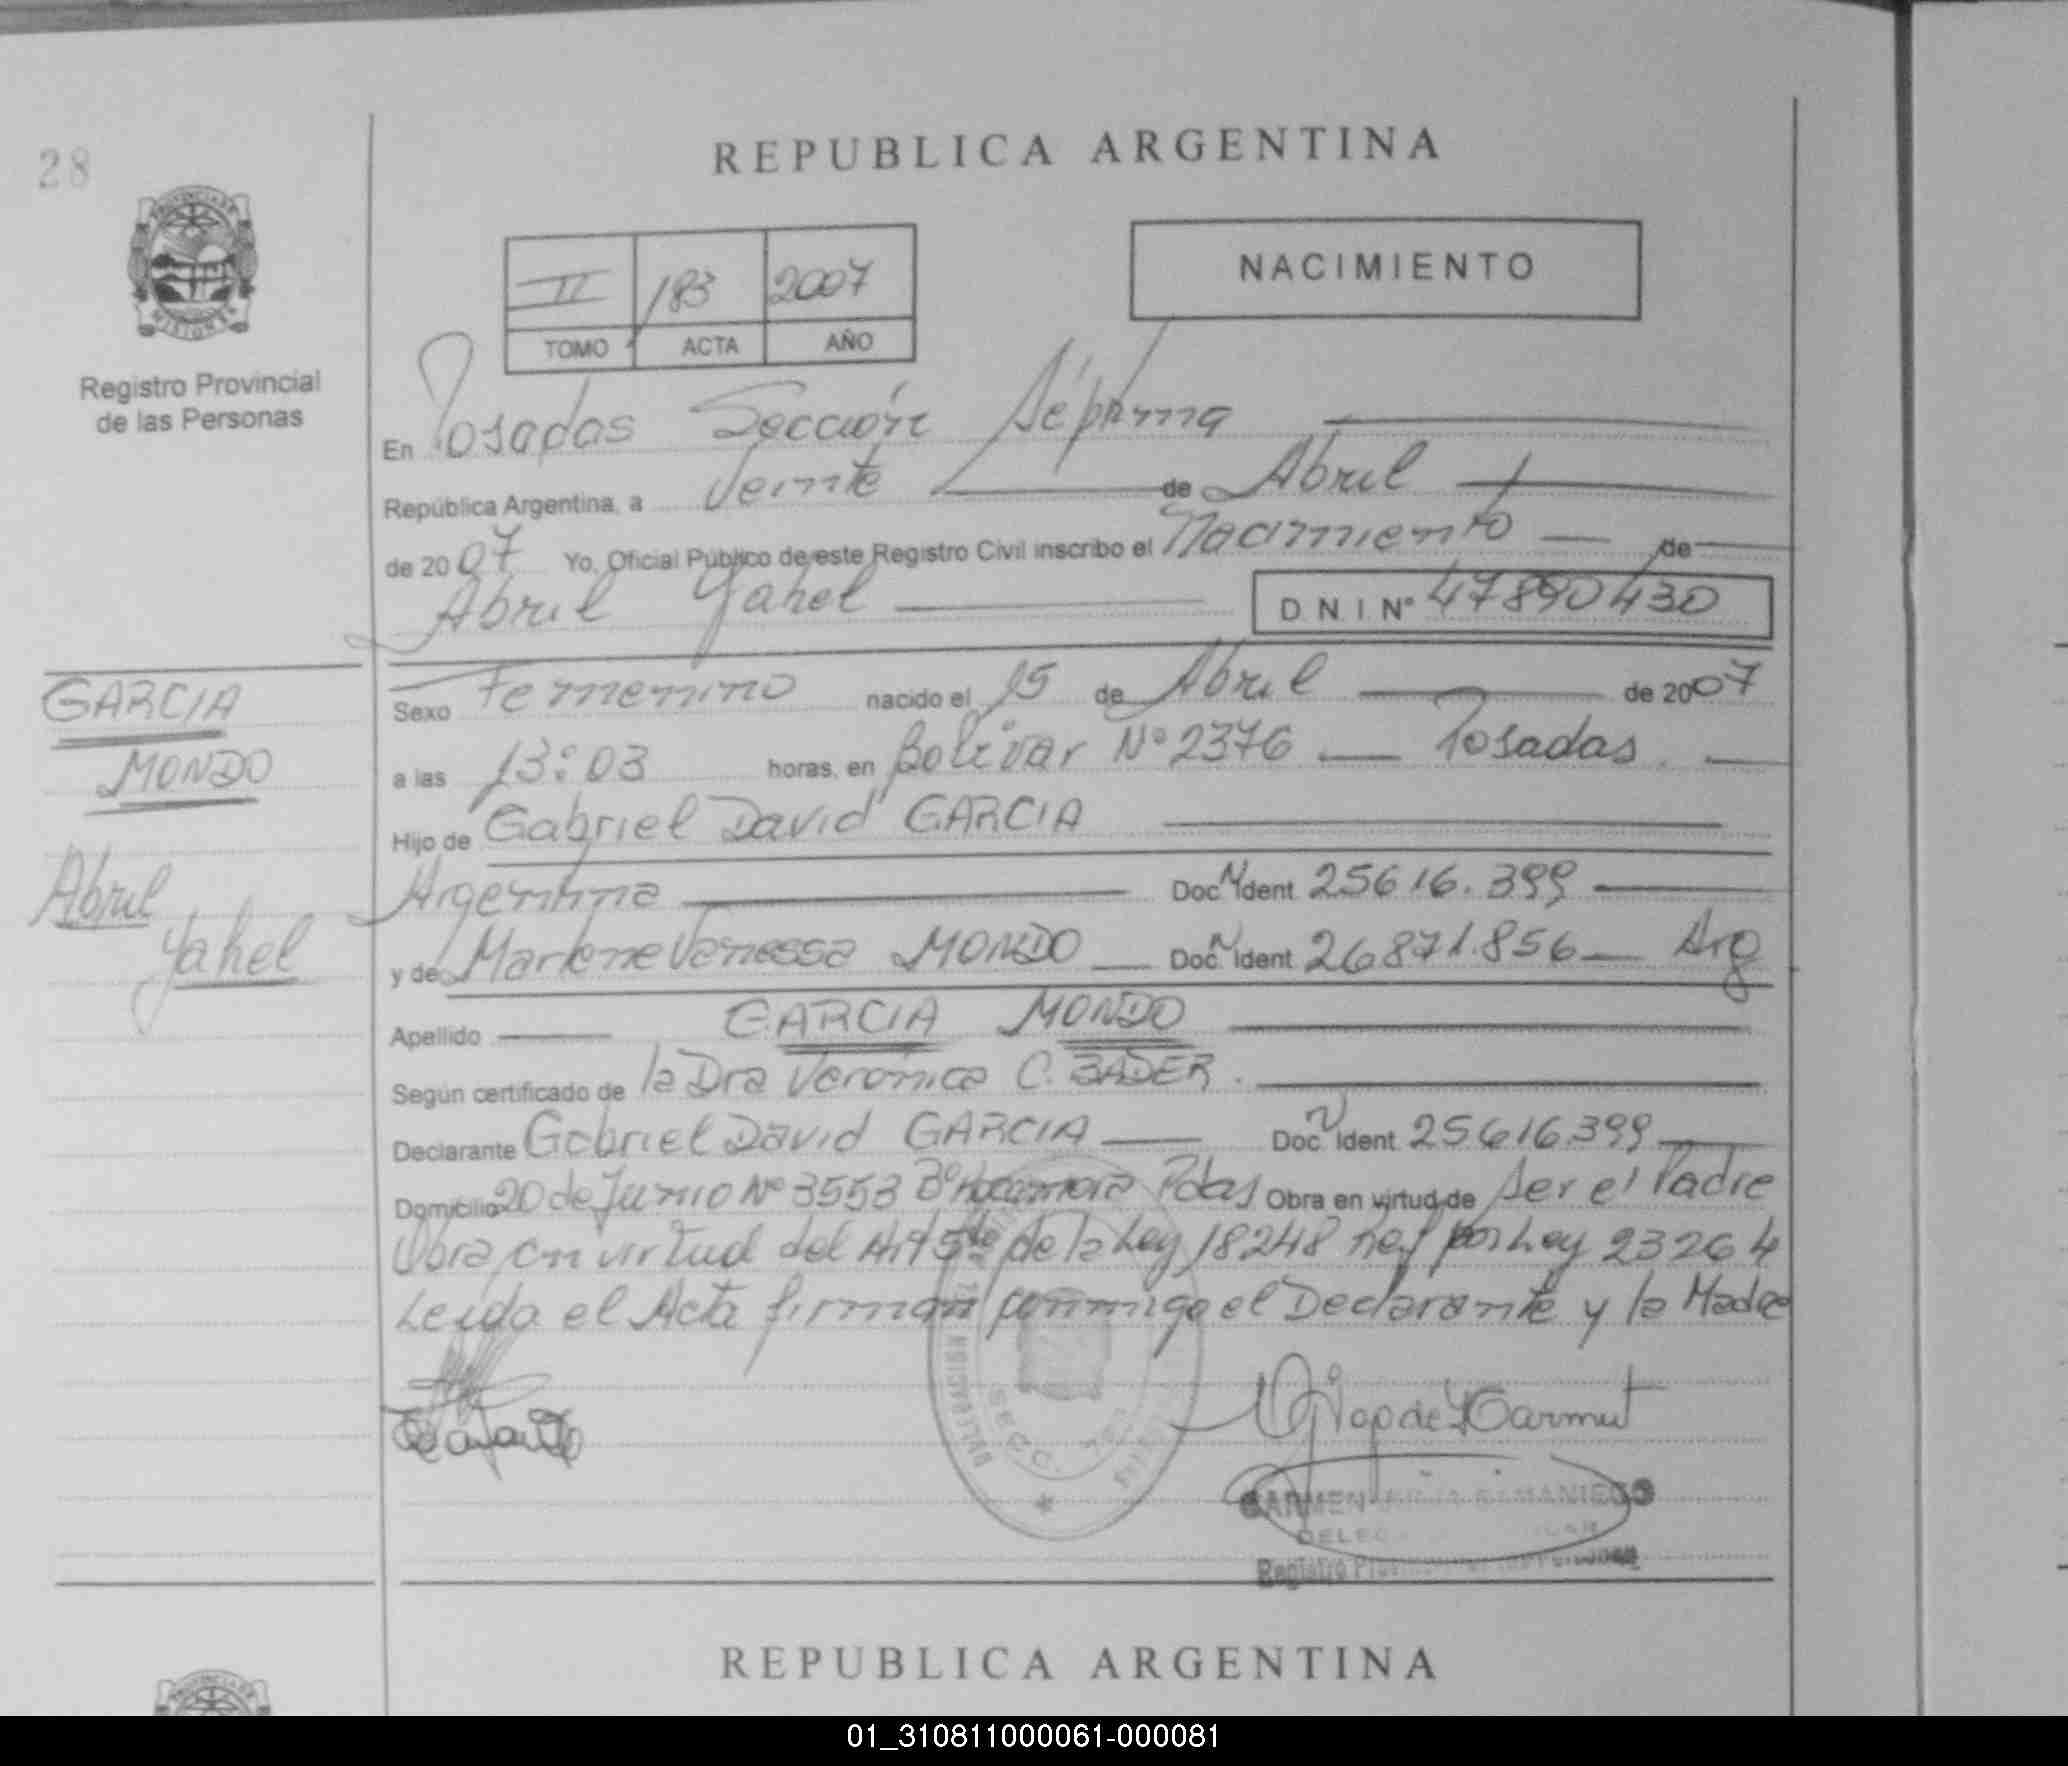 28
REPUBLICA ARGENTINA
PROVINCIA DE
MISIONES
Registro Provincial
de las Personas
II 183 2007
TOMO ACTA AÑO
NACIMIENTO
En Posadas Sección Séptima
República Argentina, a Veinte de Abril
de 2007 Yo, Oficial Público de este Registro Civil inscribo el Nacimiento de
Abril Yahel D.N.I Nº 47890430
GARCIA
MONDO
Abril
Yahel
Sexo Femenino nacido el 15 de Abril de 2007
a las 13:03 horas, en Bolívar Nº 2376 Posadas
Hijo de Gabriel David GARCIA
Argentina Doc. N Ident 25616.399
y de Marlene Vanessa MONDO Doc. N Ident 26871.856 Arg
Apellido GARCIA MONDO
Según certificado de la Dra Verónica C. BADER.
Declarante Gabriel David GARCIA Doc. N Ident 25616.399
Domicilio 20 de Junio Nº 3553 Bº Pdas Obra en virtud de Ser el Padre
Obra en virtud del Art 5to de la Ley 18248 por Ley 23264
Leída el Acta firman conmigo el Declarante y la Madre
CARMEN SAMANIEGO
Registro
REPUBLICA ARGENTINA
01_310811000061-000081